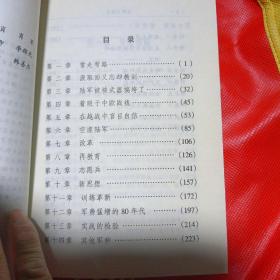 目录
第一章 常走弯路 (1)
第二章 汲取而又忘却教训 (20)
第三章 陆军被核武器搞垮了 (32)
第四章 着眼于中欧战线 (45)
第五章 在越战中盲目自信 (52)
第六章 空虚陆军 (85)
第七章 改革 (106)
第八章 再教育 (126)
第九章 志愿兵 (141)
第十章 新思想 (157)
第十一章 训练革新 (172)
第十二章 军费猛增的80年代 (197)
第十三章 实战的检验 (214)
第十四章 其他军种 (223)